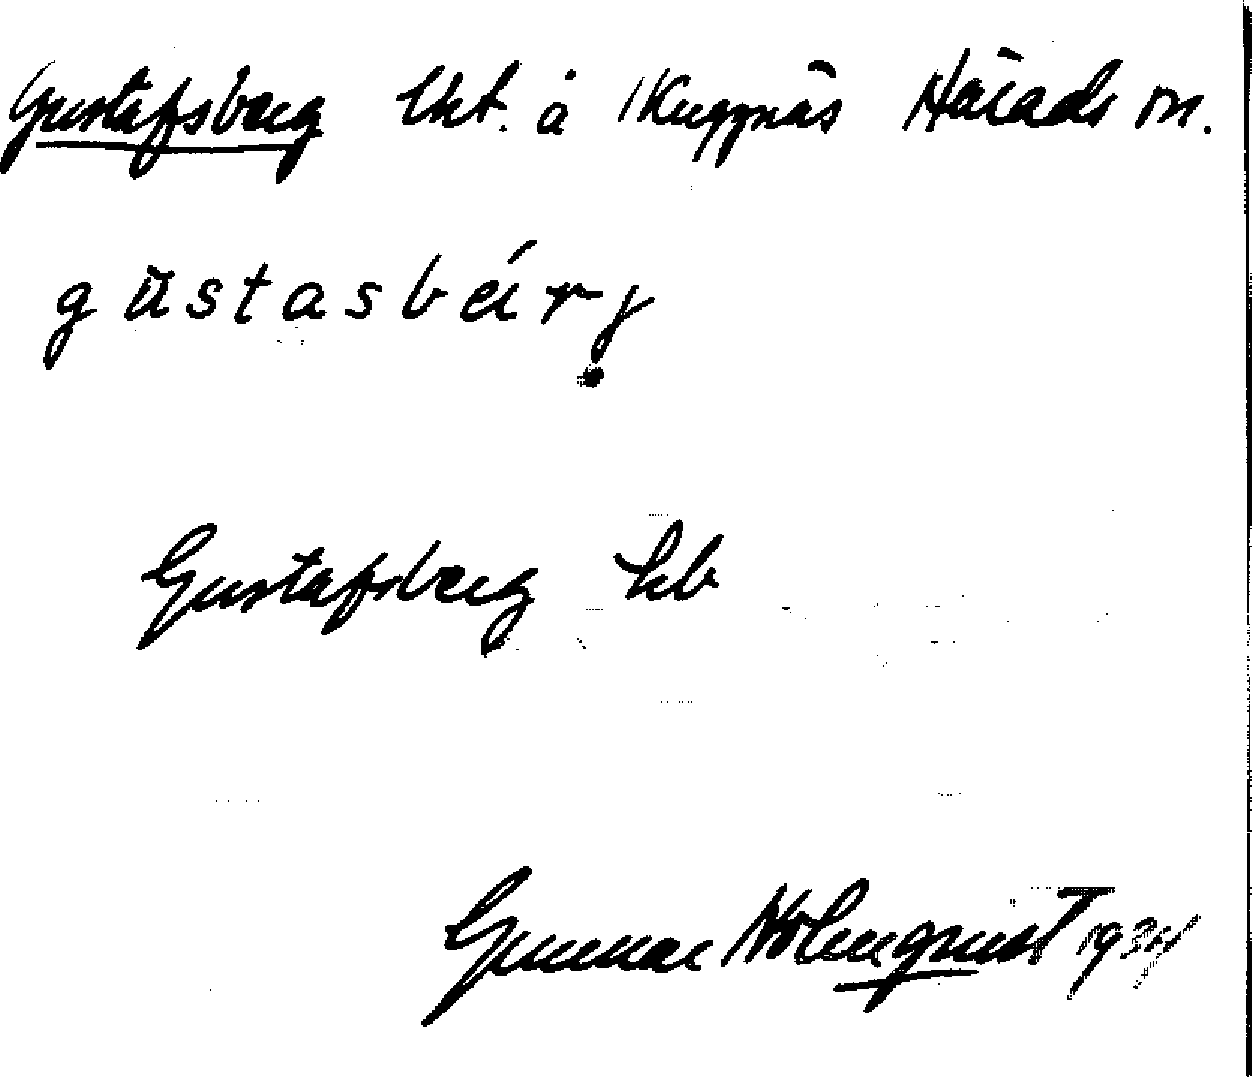 Gustafsberg lht. å Kuggnäs Härads sn.
gustasbärj
Gustafsberg kb
Gunnar Holmquist 1934